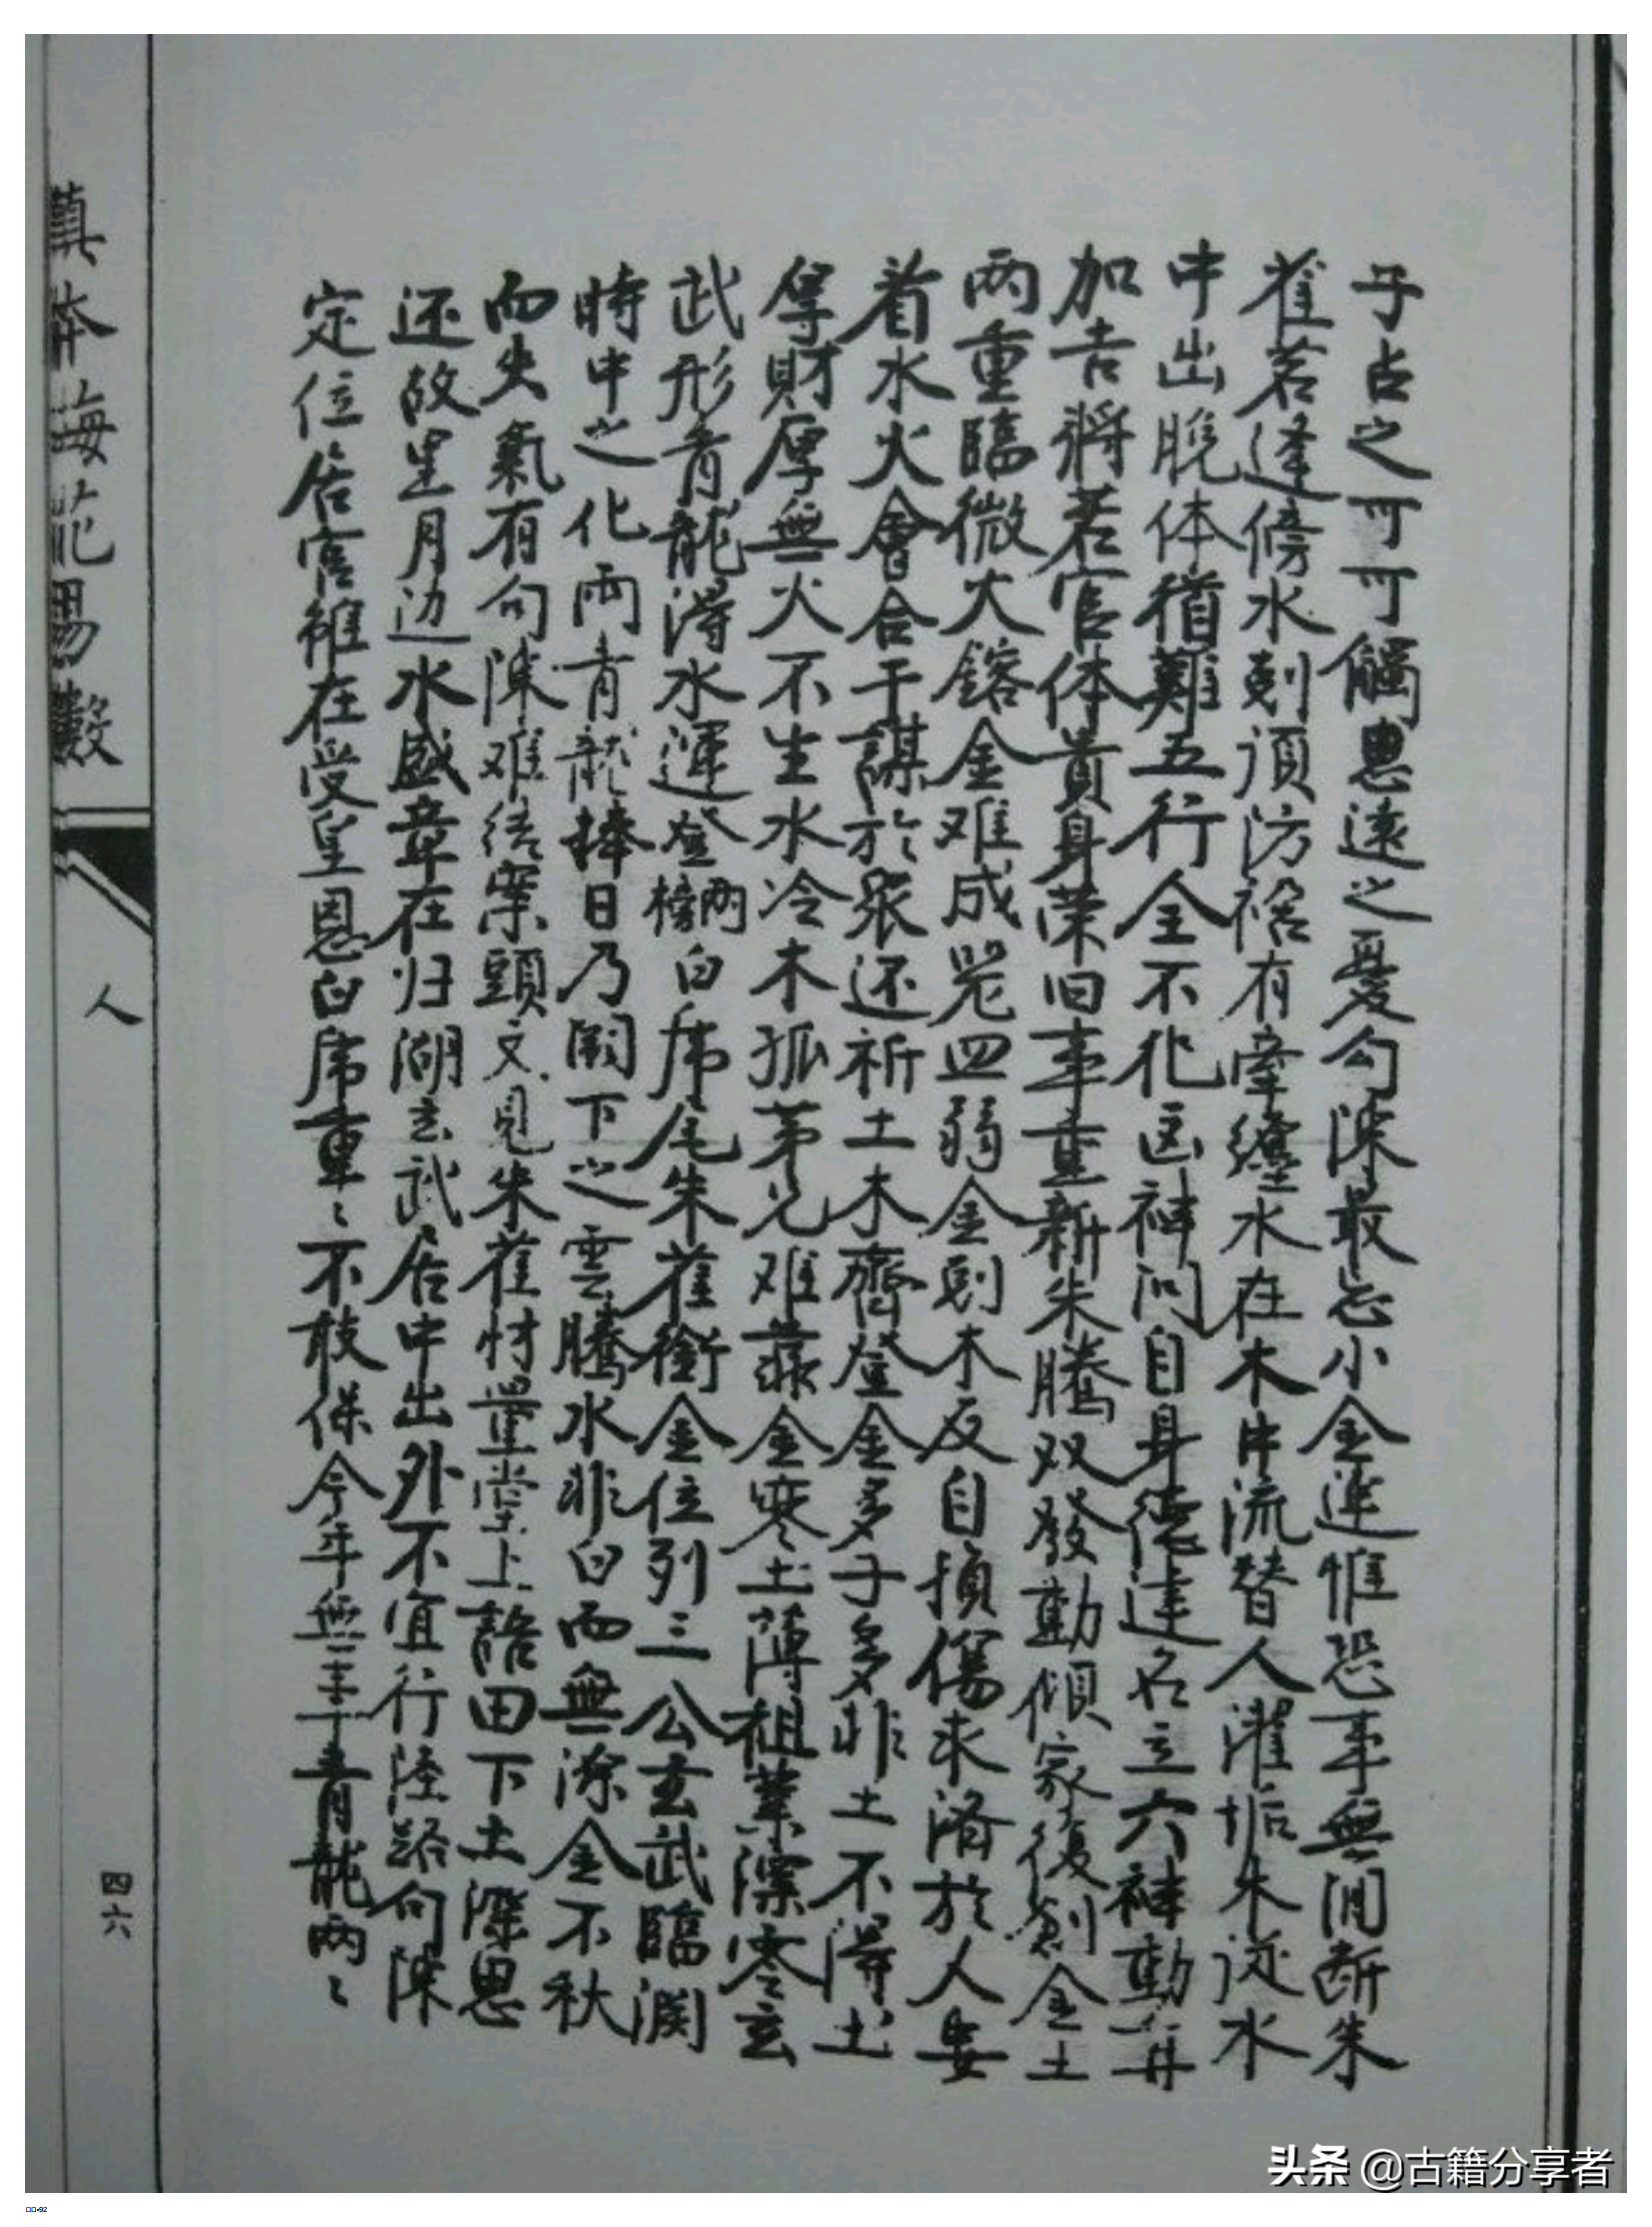 子占之可可觸患遠之憂勾陳最忘小金連惟恐事無間断朱
雀若逢傍水剋須防褡有牵纏水在木中流替人濯垢朱逆水
中出脫体猶難五行全不化凶神问自身德達名立六神動再
加吉將若官体貴身荣旧事重新朱騰双發動傾家後創金土
两重臨微火鎔金难成器四弱金剋木反自損傷求济於人要
着水火會合干謀於眾还祈土木齊登金多子多非土不得土
厚財厚無火不生水冷木孤弟兄难靠金寒土薄祖業漂零玄
武形青龍得水運登榜两白虎尾朱雀銜金位列三公玄武臨渕
時中之化两青龍捧日乃闕下之雲騰水非白而無深金不秋
而失氣有句陳难結案頭文見朱雀材量堂上語田下土深思
还故里月边水盛章在归湖玄武居中出外不宜行陸路句陳
定位居官雖在受皇恩白虎重〻不敢保今年無事青龍两〻
真本梅花易數
人
四六
头条 @古籍分享者